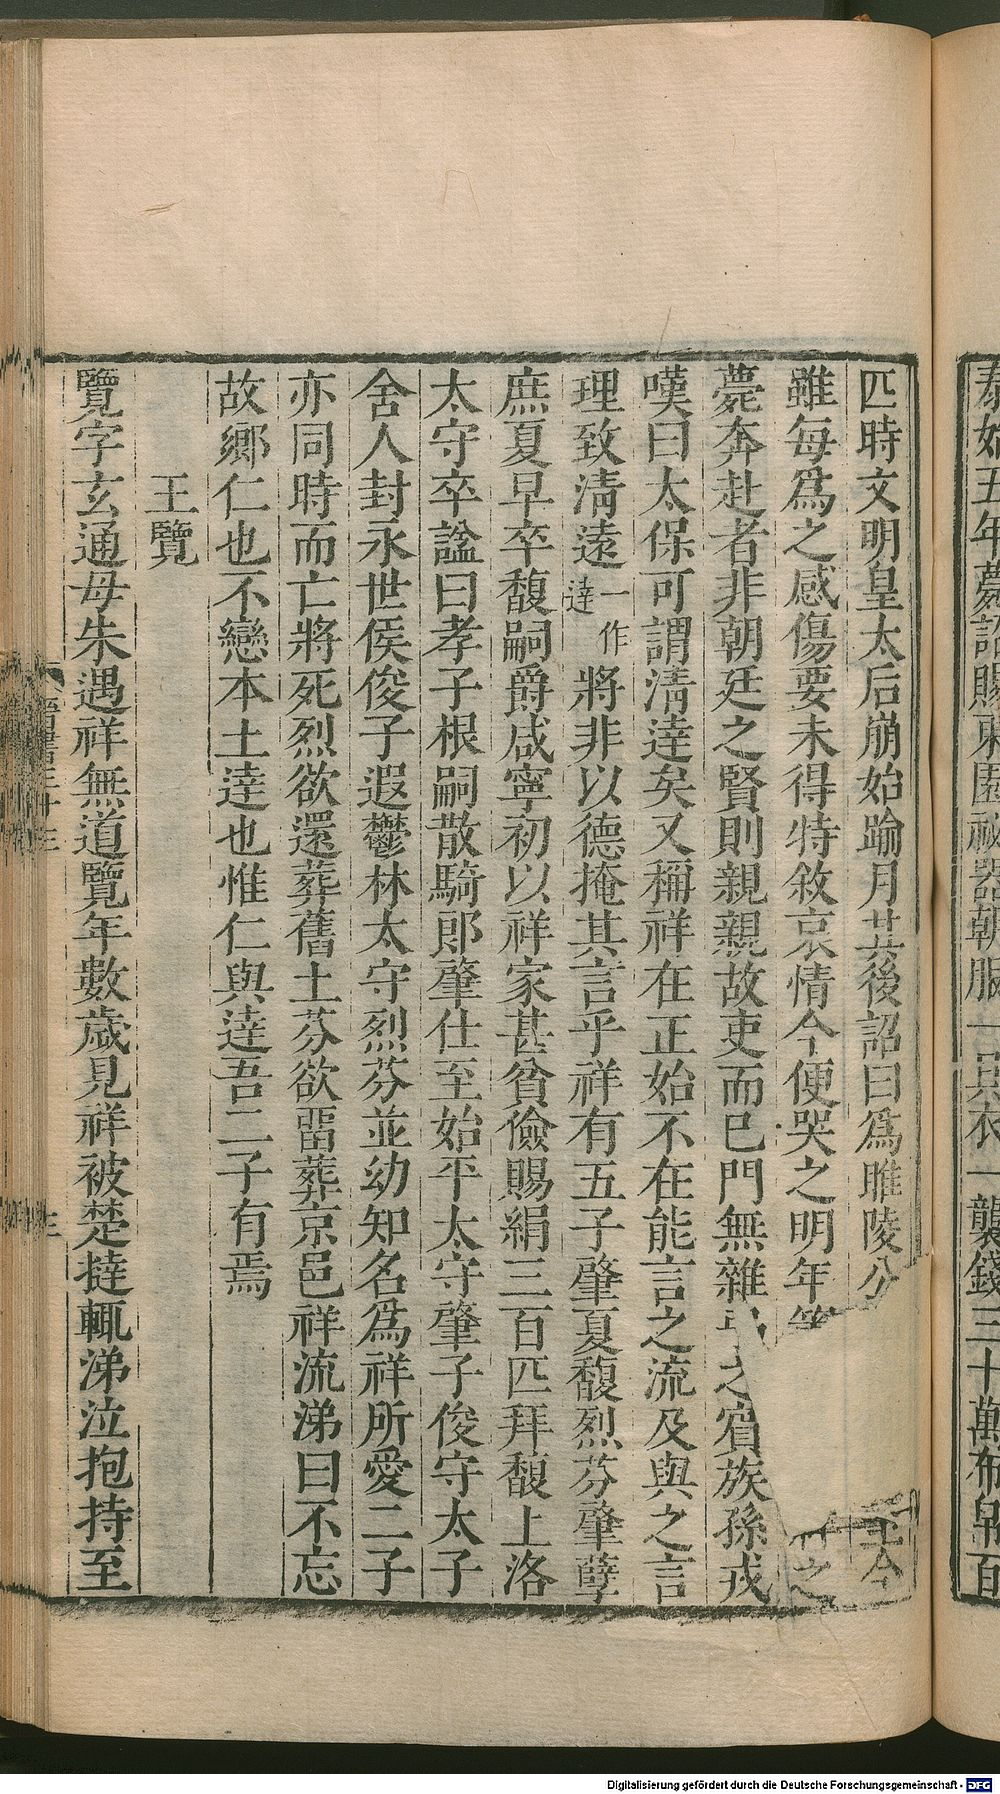 泰始五年薨詔賜東園祕器朝服一具衣一襲錢三十萬布帛百
匹時文明皇太后崩始踰月其後詔曰爲睢陵公
雖每爲之感傷要未得特敘哀情今便哭之明年
薨奔赴者非朝廷之賢則親親故吏而已門無雜 之賓族孫戎
嘆曰太保可謂淸達矣又稱祥在正始不在能言之流及與之言
理致淸遠一作達將非以德掩其言乎祥有五子肇夏馥烈芬肇孽
庶夏早卒馥嗣爵咸寧初以祥家甚貧儉賜絹三百匹拜馥上洛
太守卒諡曰孝子根嗣散騎郎肇仕至始平太守肇子俊守太子
舍人封永世侯俊子遐鬱林太守烈芬並幼知名爲祥所愛二子
亦同時而亡將死烈欲還葬舊土芬欲畱葬京邑祥流涕曰不忘
故鄉仁也不戀本土達也惟仁與達吾二子有焉
王覽
覽字玄通母朱遇祥無道覽年數歲見祥被楚撻輒涕泣抱持至
Digitalisierung gefördert durch die Deutsche Forschungsgemeinschaft - DFG